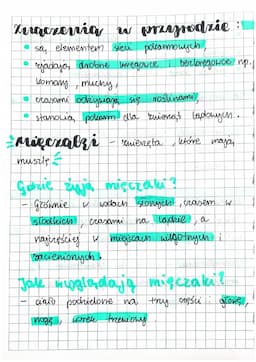 Znaczenia w przyrodzie :
• są elementem sieci pokarmowych,
• zjadają drobne kręgowce i bezkręgowce np.
komary, muchy,
• czasami odżywiają się roślinami,
• stanowią pokarm dla zwierząt lądowych.
Mięczaki - zwierzęta, które mają
muszlę
Gdzie żyją mięczaki?
- głównie w wodach słonych, czasem w
słodkich, czasami na lądzie, a
najczęściej w miejscach wilgotnych i
zacienionych.
Jak wyglądają mięczaki?
- ciało podzielone na trzy części : głowę,
nogę, worek trzewiowy